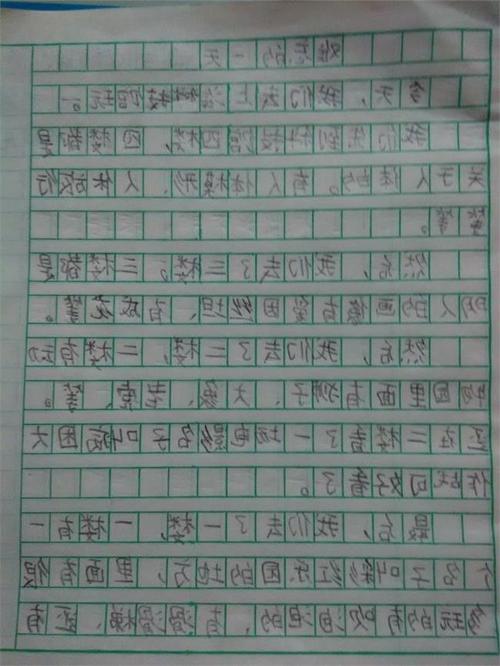 难忘的一天
今天，我们去上海科技馆玩。
我们先到科技馆四楼，四楼都是
关于人体的。有人体模形、人体旅行
等等。
然后，我们去了三楼，三楼都是
人的画像有爱因斯坦、等。
然后，我们去了二楼，二楼有动
物园里面有狮子、大象、老虎、等。
还在二楼看了一场电影名子叫困大
作战可好看了。
最后，我们去了一楼，一楼有一
个名子叫彩虹乐园的地方，里面有很
多玩的有吹泡泡的，有滑滑梯、还有